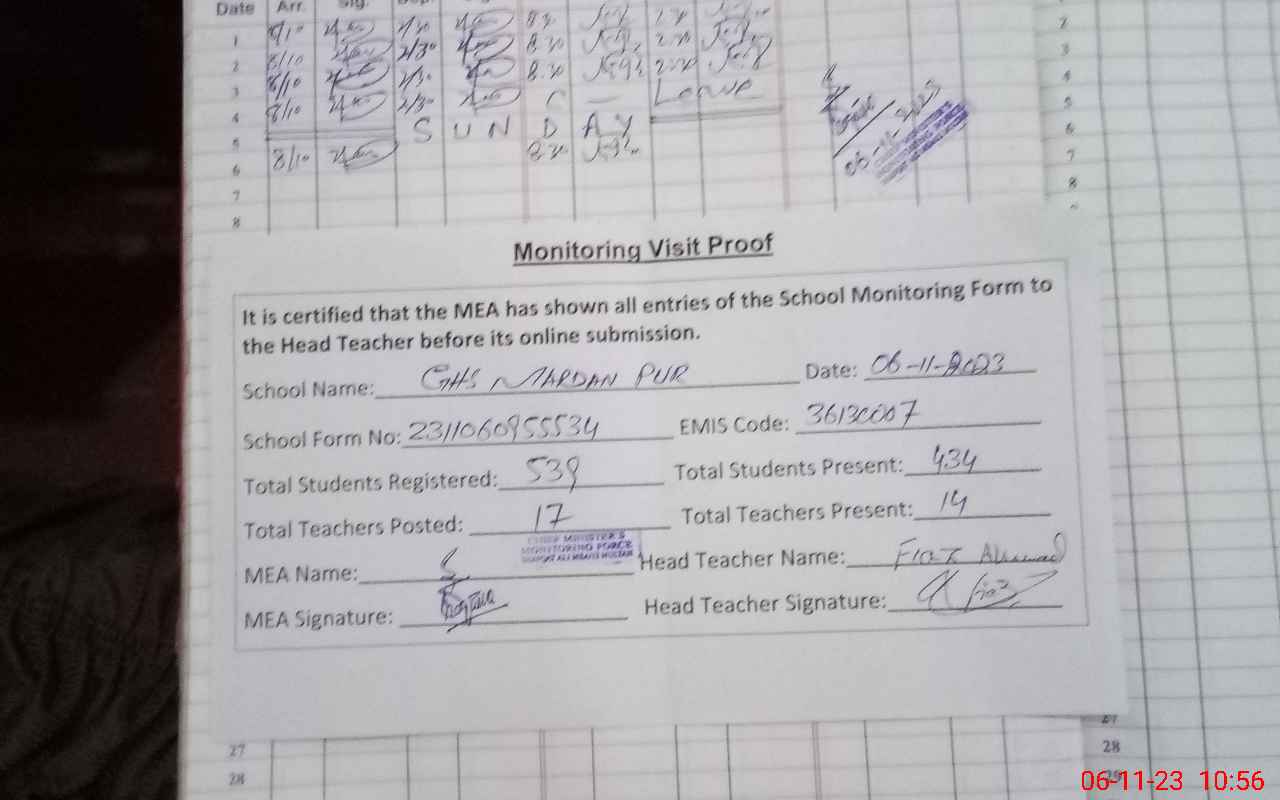 Date Arr. Sig.
1 8/10 2/30 8.30
2 8/10 2/30 8.30 2.30
3 8/10 2/30 8.30 2.30
4 8/10 2/30 Leave
5 SUNDAY
6 8/10 8.30
7
8
2
3
4
5
6
7
8
06-11-2023
Monitoring Visit Proof
It is certified that the MEA has shown all entries of the School Monitoring Form to
the Head Teacher before its online submission.
School Name: GHS MARDAN PUR Date: 06-11-2023
School Form No: 2311060955534 EMIS Code: 36130007
Total Students Registered: 539 Total Students Present: 434
Total Teachers Posted: 17 Total Teachers Present: 14
CHIEF MINISTER'S
MONITORING FORCE
MEA Name: Head Teacher Name: Fiaz Ahmad
MEA Signature: Head Teacher Signature:
27 27
28 28
29
06-11-23 10:56